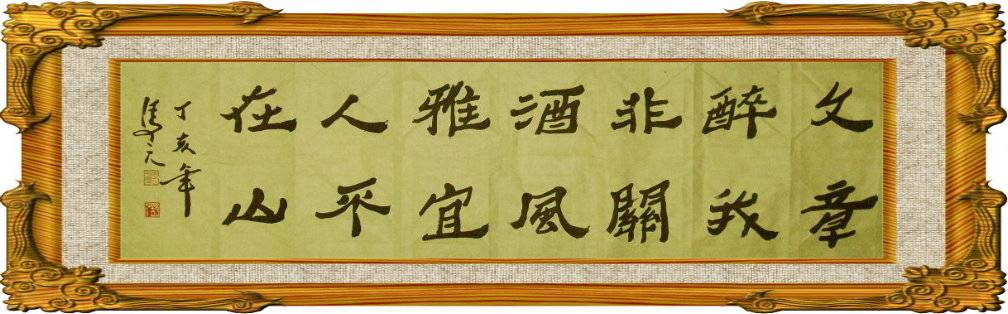 文章
醉我
非關
酒風
雅宜
人不
在山
丁亥年